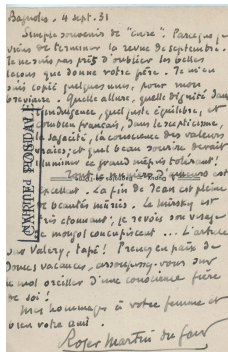 Bagnoles - 4 sept. 31
Simple souvenir de "cure". Parce que je
viens de terminer la revue de septembre.
Je ne suis pas près d'oublier les belles
leçons que donne votre père. Je m'en
suis copié quelques unes, pour mon
bréviaire. Quelle allure, quelle dignité dans
l'indulgence, quel juste équilibre, et
combien français, dans le scepticisme,
la sagacité, la conscience des valeurs
vraies, et quel beau sourire devait
illuminer ce grand mépris tolérant!
CARTE POSTALE
excellent. La fin de Jean est pleine
de beautés mûries. Le Mirsky est
très étonnant, je revois son visage
de mogol concupiscent ... L'article
sur Valéry, tapé! Prenez en paix de
bonnes vacances, assoupissez-vous sur
le mol oreiller d'une conscience fière
de soi!
Mes hommages à votre femme et
bien votre ami.
Roger Martin du Gard